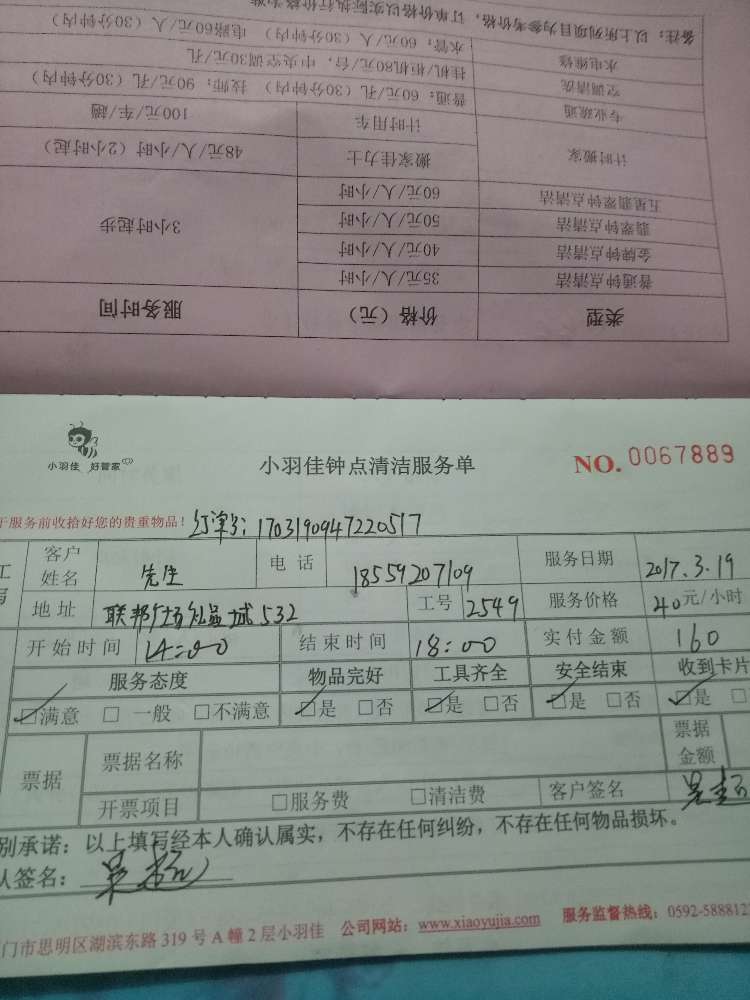 备注：以上所列项目为参考价格，订单价格以实际执行价格为准
水电维修 水管：60元/人（30分钟内） 电路60元/人（30分钟内）
空调清洗 挂机/柜机80元/台，中央空调30元/孔
专业疏通 普通：60元/孔（30分钟内） 技师：90元/孔（30分钟内）
计时搬家 计时用车 100元/车/趟
搬家佳力士 48元/人/小时（2小时起）
五星翡翠钟点清洁 60元/人/小时
翡翠钟点清洁 50元/人/小时 3小时起步
金牌钟点清洁 40元/人/小时
普通钟点清洁 35元/人/小时
类型 价格（元） 服务时间
小羽佳 好管家
小羽佳钟点清洁服务单
NO. 0067889
于服务前收拾好您的贵重物品！ 订单号: 1703190947220517
客户姓名 先生 电话 18559207109 服务日期 2017.3.19
地址 联邦 城532 工号 2549 服务价格 40元/小时
开始时间 14:00 结束时间 18:00 实付金额 160
服务态度 物品完好 工具齐全 安全结束 收到卡片
☑满意 □一般 □不满意 ☑是 □否 ☑是 □否 ☑是 □否 ☑是
票据 票据名称 票据金额
开票项目 □服务费 □清洁费 客户签名
别承诺：以上填写经本人确认属实，不存在任何纠纷，不存在任何物品损坏。
认签名：
门市思明区湖滨东路 319 号 A 幢 2 层小羽佳 公司网站：www.xiaoyujia.com 服务监督热线：0592-588812